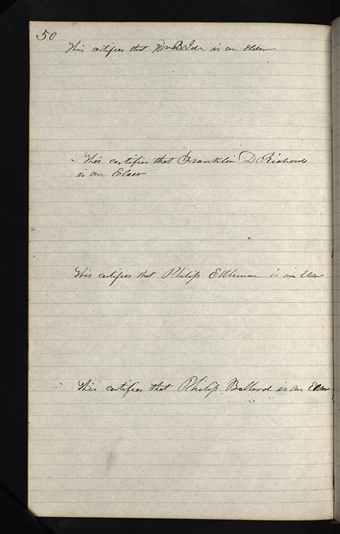 50
This certifies that Wm B. Ide is an Elder
This certifies that Franklin D. Richards
is an Elder
This certifies that Philip Ettleman is an Elder
This certifies that Philip Ballard is an Elder